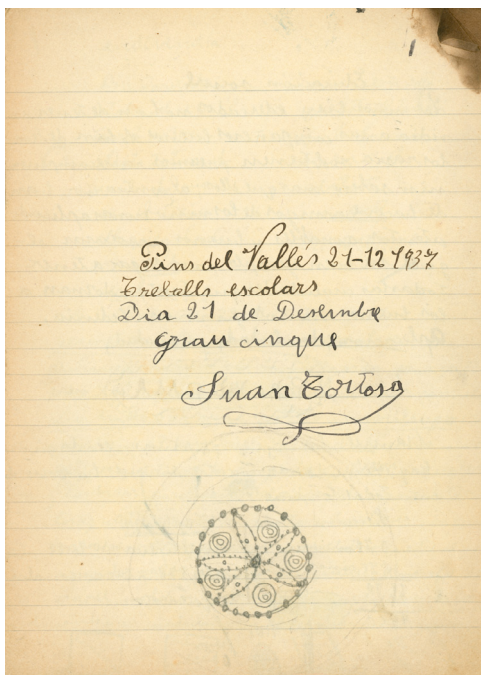 Pins del Vallés 21-12 1937
Treballs escolars
Dia 21 de Desembre
grau cinque
Juan Tortosa